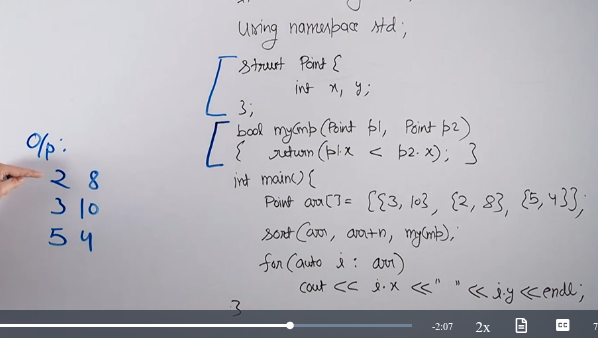 using namespace std;
struct Point {
int x, y;
};
bool myCmp(Point p1, Point p2)
{ return(p1.x < p2.x); }
int main(){
Point arr[]= {{3, 10}, {2, 8}, {5, 4}};
sort(arr, arr+n, myCmp);
for(auto i : arr)
cout << i.x <<" " << i.y <<endl;
}
O/p:
2 8
3 10
5 4
-2:07 2x CC 7